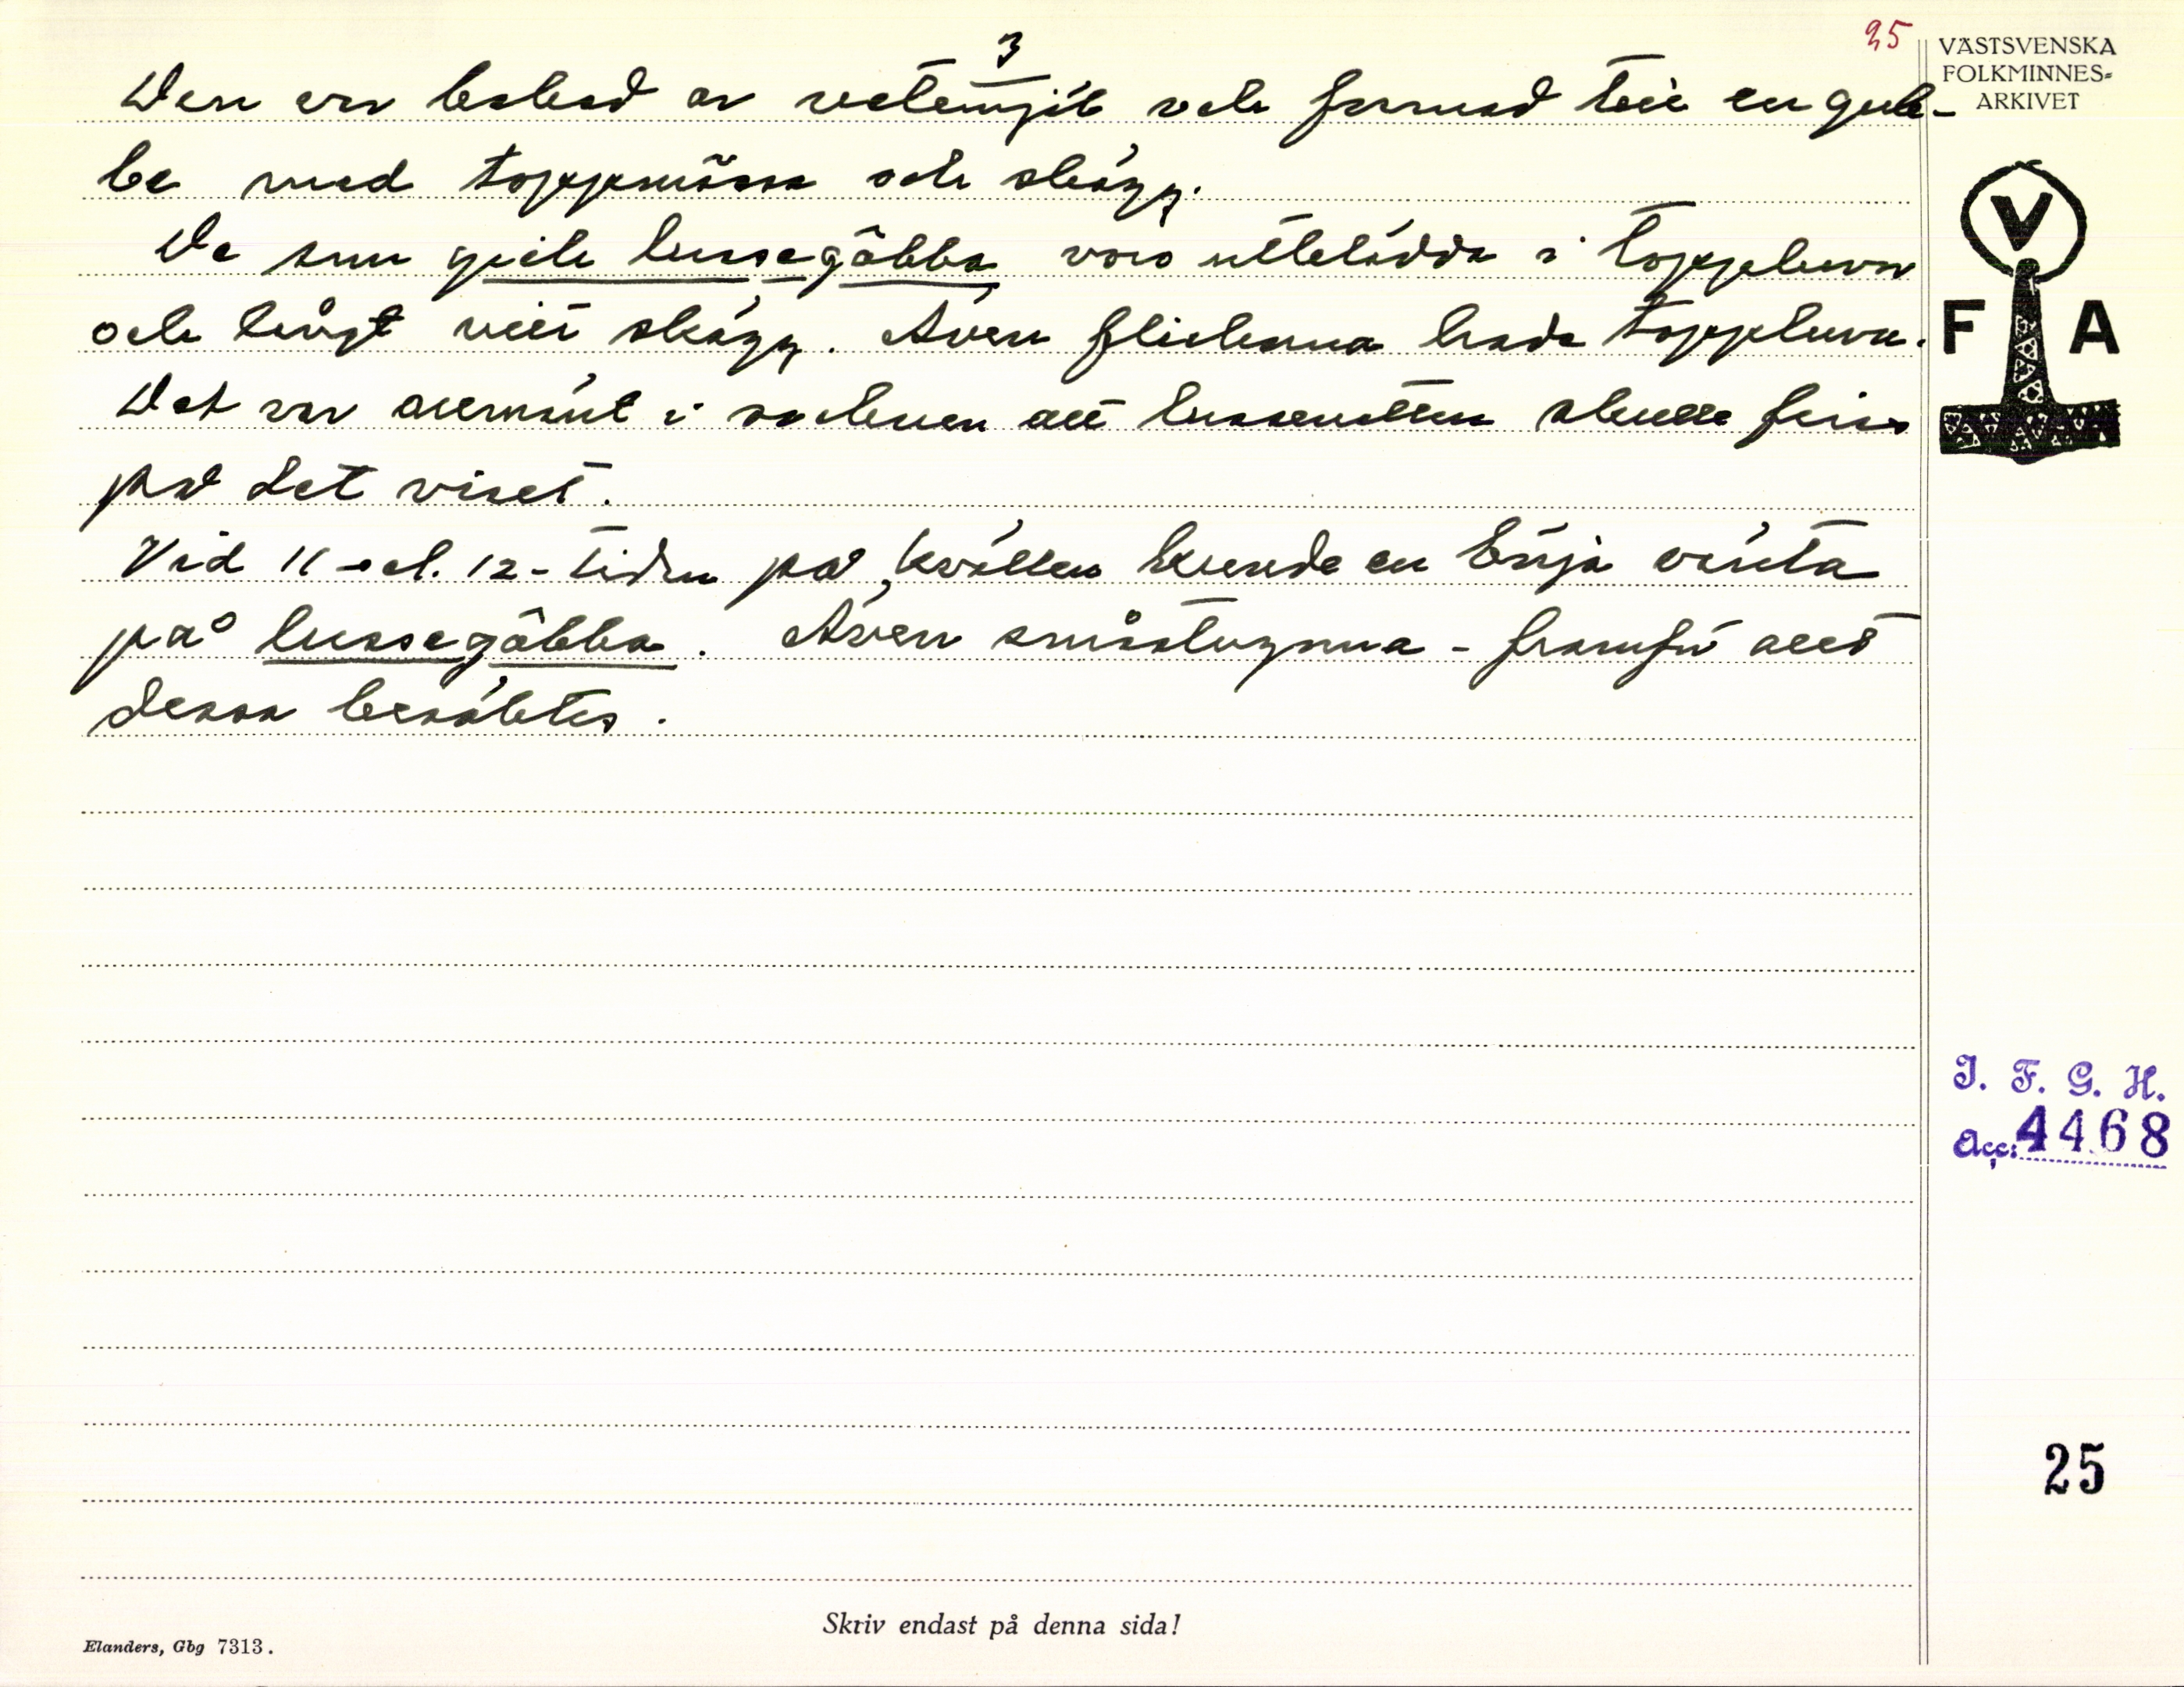 3
25
VÄSTSVENSKA
FOLKMINNES=
ARKIVET
Den var bakad av vetemjöl och formad till en gub-
be med toppmössa och skägg.
De som gick lussegôbba voro utklädda i toppluva
och långt vitt skägg. Även flickorna hade toppluva.
Det var allmänt i socknen att lussenatten skulle firas
på det viset.
Vid 11 - el. 12-tiden på kvällen kunde en börja vänta
på lussegôbba. Även småstugorna - framför allt
dessa besöktes.
V
F A
I. F. G. H.
Acc: 4468
25
Skriv endast på denna sida!
Elanders, Gbg 7313.